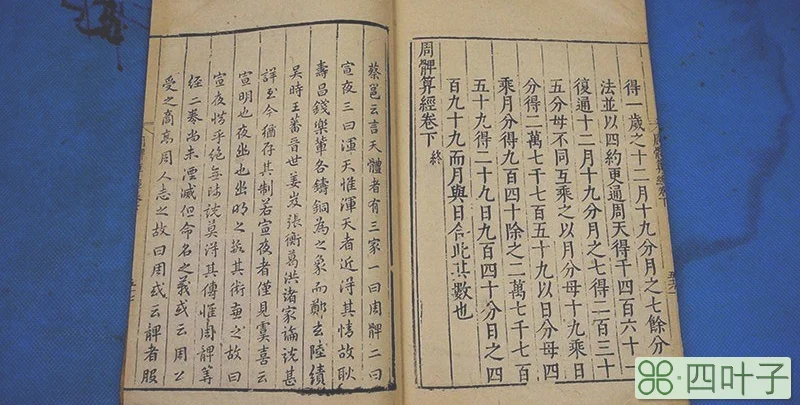 得一歲之十二月十九分月之七餘分
法並以四約更通周天得千四百六十一
復通十二月十九分月之七得二百三十
五分母不同互乘之以月分母十九乘日
分得二萬七千七百五十九以日分母四
乘月分得九百四十除之二萬七千七百
五十九得二十九日九百四十分日之四
百九十九而月與日合此其數也
周髀算經卷下 終
蔡邕云言天體者有三家一曰周髀二曰
宣夜三曰渾天惟渾天者近得其情故耿
壽昌錢樂輩各鑄銅為之象而鄭玄陸績
吳時王蕃晉世姜岌張衡葛洪諸家論說甚
詳至今猶存其制若宣夜者僅見虞喜云
宣明也夜幽也幽明之故其術兼之故曰
宣夜惜乎絕無師說莫得其傳惟周髀算
經二卷尚未湮滅但命名之義或云周公
受之商高周人志之故曰周或云髀者股
四叶子